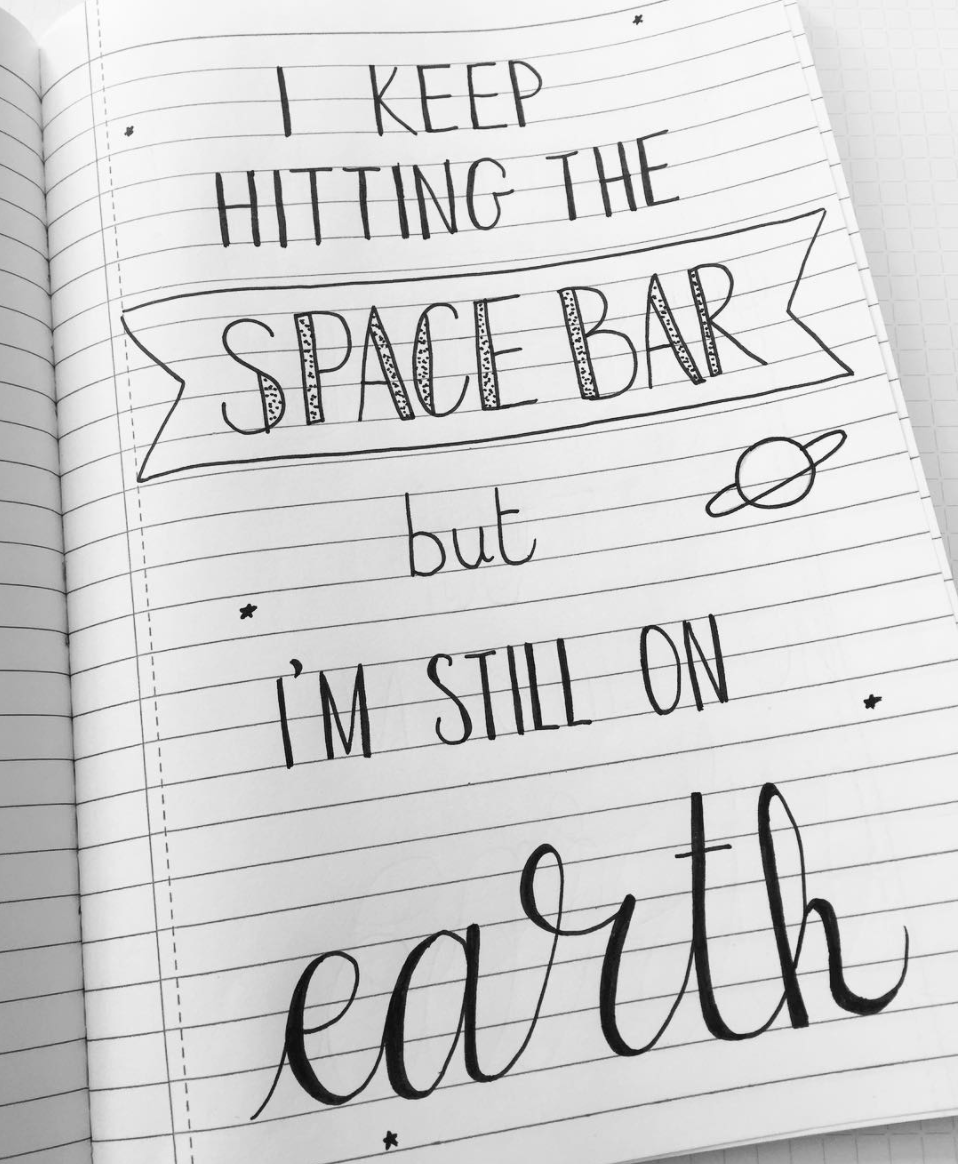 I KEEP
HITTING THE
SPACE BAR
but
I'M STILL ON
earth